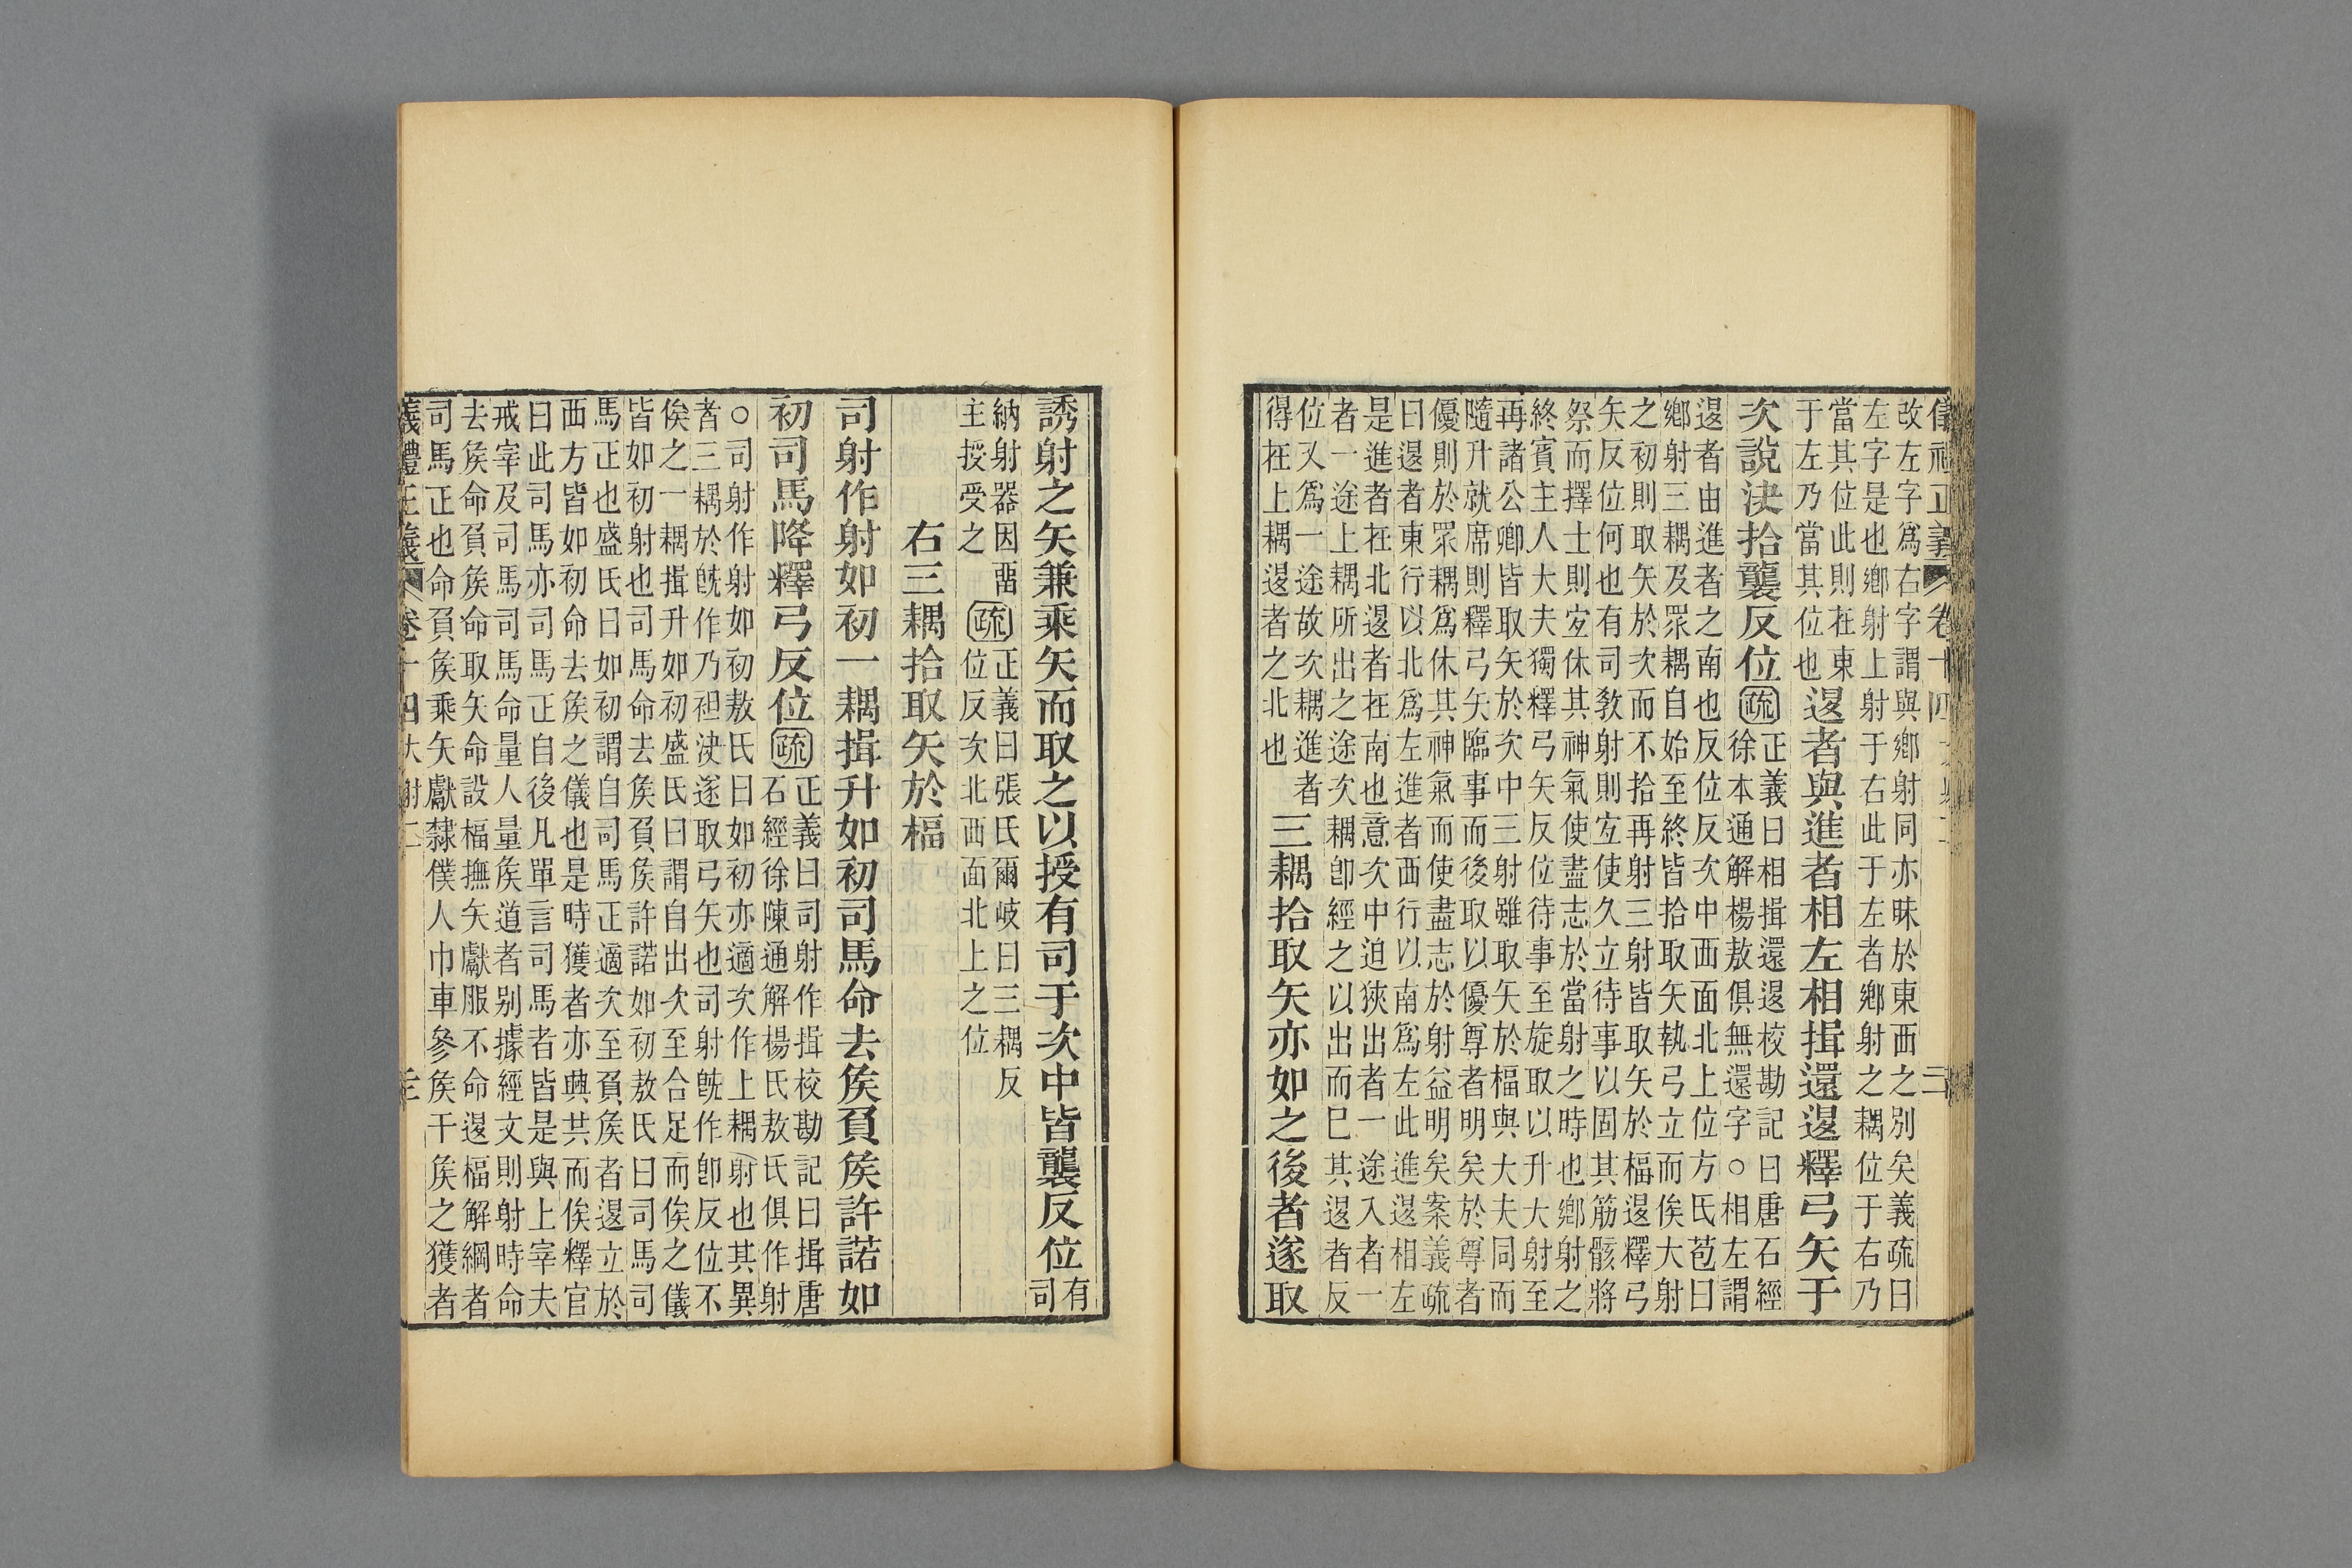 儀禮正義 卷十四 大射二 二
改左字爲右字謂與鄉射同亦昧於東西之別矣義疏曰
左字是也鄉射上射于右此于左者鄉射之耦位于右乃
當其位此則在東
于左乃當其位也
退者與進者相左相揖還退釋弓矢于
次說決拾襲反位疏
正義曰相揖還退校勘記曰唐石經
徐本通解楊敖俱無還字○相左謂
退者由進者之南也反位反次中西面北上位方氏苞曰
鄉射三耦及眾耦自始至終皆拾取矢執弓立而俟大射
之初則取矢於次而不拾再射三射皆取矢於楅退釋弓
矢反位何也有司敎射則宐使久立待事以固其筋骸將
祭而擇士則宐休其神氣使葢志於當射之時也鄉射之
終賓主人大夫獨釋弓矢反位待事至旋取以升大射至
再諸公卿皆取矢於次中三射雖取矢於楅與大夫同而
隨升就席則釋弓矢臨事而後取以優尊者明矣於尊者
優則於眾耦爲休其神氣而使盡志於射益明矣案義疏
曰退者東行以北爲左進者西行以南爲左此進退相左
是進者在北退者在南也意次中迫狹出者一途入者一
者一途上耦所出之途次耦卽經之以出而巳其退者反
位又爲一途故次耦進者
得在上耦退者之北也
三耦拾取矢亦如之後者遂取
誘射之矢兼乘矢而取之以授有司于次中皆襲反位
有
司
納射器因畱
主授受之
疏
正義曰張氏爾岐曰三耦反
位反次北西面北上之位
右三耦拾取矢於楅
司射作射如初一耦揖升如初司馬命去矦負矦許諾如
初司馬降釋弓反位疏
正義曰司射作揖校勘記曰揖唐
石經徐陳通解楊氏敖氏俱作射
○司射作射如初敖氏曰如初亦適次作上耦射也其異
者三耦於旣作乃袒決遂取弓矢也司射旣作卽反位不
俟之一耦揖升如初盛氏曰謂自出次至合足而俟之儀
皆如初射也司馬命去矦負矦許諾如初敖氏曰司馬司
馬正也盛氏曰如初謂自司馬正適次至負矦者退立於
西方皆如初命去矦之儀也是時獲者亦興共而俟釋官
曰此司馬亦司馬正自後凡單言司馬者皆是與上宰夫
戒宰及司馬司馬命量人量矦道者別據經文則射時命
去矦命負矦命取矢命設楅撫矢獻服不命退楅解綱者
司馬正也命負矦乘矢獻隸僕人巾車參矦干矦之獲者
儀禮正義 卷十四 大射二 三